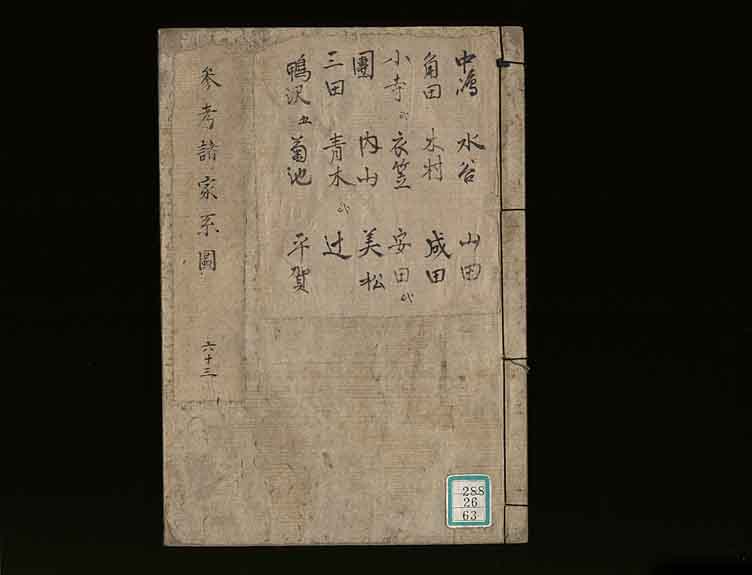 中嶋 水谷 山田
角田 木村 成田
小寺 衣笠 安田
團 内山 美松
三田 青木 辻
鴨沢 菊池 平賀
参考諸家系圖 六十三
288
26
63